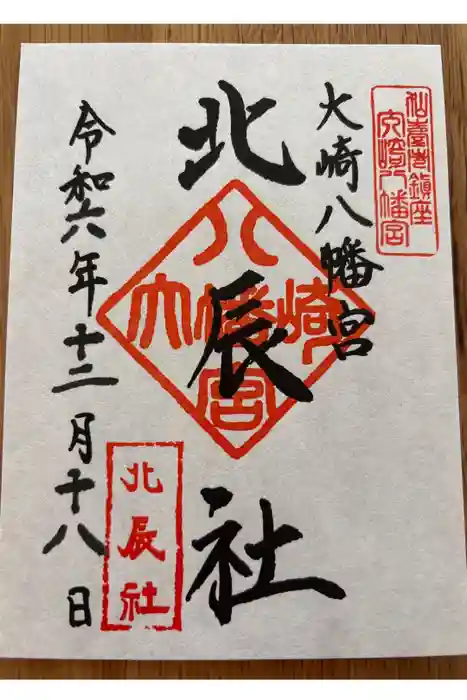 仙臺市鎮座
大崎八幡宮
大崎八幡宮
北辰社
八
大幡崎
宮
北辰社
令和六年十二月十八日